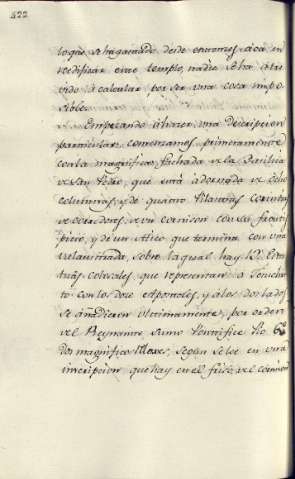 422
lo que se ha gastado desde entonces acá en
reedificar este templo, nadie se ha atre
vido à calcular por ser una cosa impo
sible.
Empezando à hacer una descripcion
particular comenzamos primeramente
con la magnifica fachada de la Basilica
de San Pedro, que está adornada de Ocho
columnas, y de quatro Pilastras Corintias
de con un cornison con su frontis
picio, y de un Atico que termina con una
valaustrada, sobre la qual hay 13 Esta
tuas colosales, que representan a Jesuchris
to con los doce Apostoles, y à los dos lados
se añadieron ultimamente, por orden
del Reynante Sumo Pontifice Pio 6º
dos magnificos Reloxes, segun se lee en una
inscripcion que hay en el friso del cornison